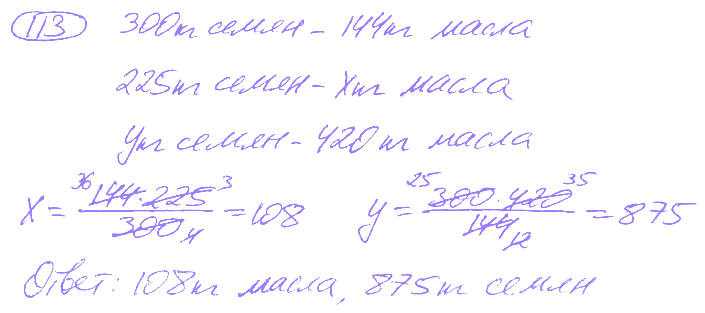 113 300 кг семян – 144 кг масла
225 кг семян – x кг масла
y кг семян – 420 кг масла
x = 36 144 · 225 3 / 300 4 = 108 y = 25 300 · 420 35 / 144 12 = 875
Ответ: 108 кг масла, 875 кг семян